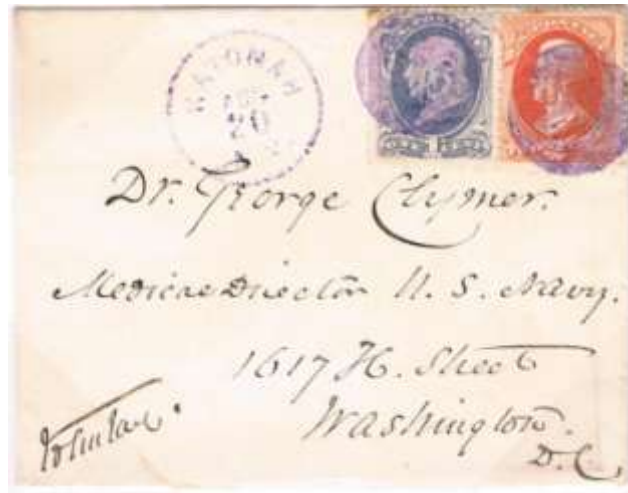 KATONAH
20
Dr. George Clymer.
Medical Director U. S. Navy.
1617 H. Street
Washington.
D. C.